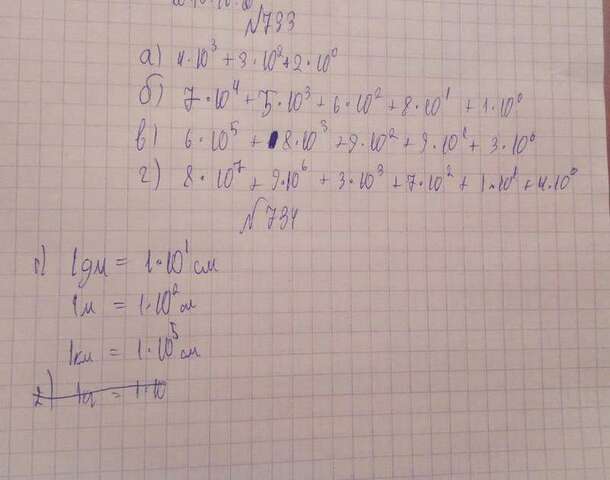 №733
а) 4·10³ + 3·10² + 2·10⁰
б) 7·10⁴ + 5·10³ + 6·10² + 8·10¹ + 1·10⁰
в) 6·10⁵ + 8·10³ + 9·10² + 9·10¹ + 3·10⁰
г) 8·10⁷ + 9·10⁶ + 3·10³ + 7·10² + 1·10¹ + 4·10⁰
№734
1дм = 1·10¹ см
1м = 1·10² см
1км = 1·10⁵ см
= 1·10